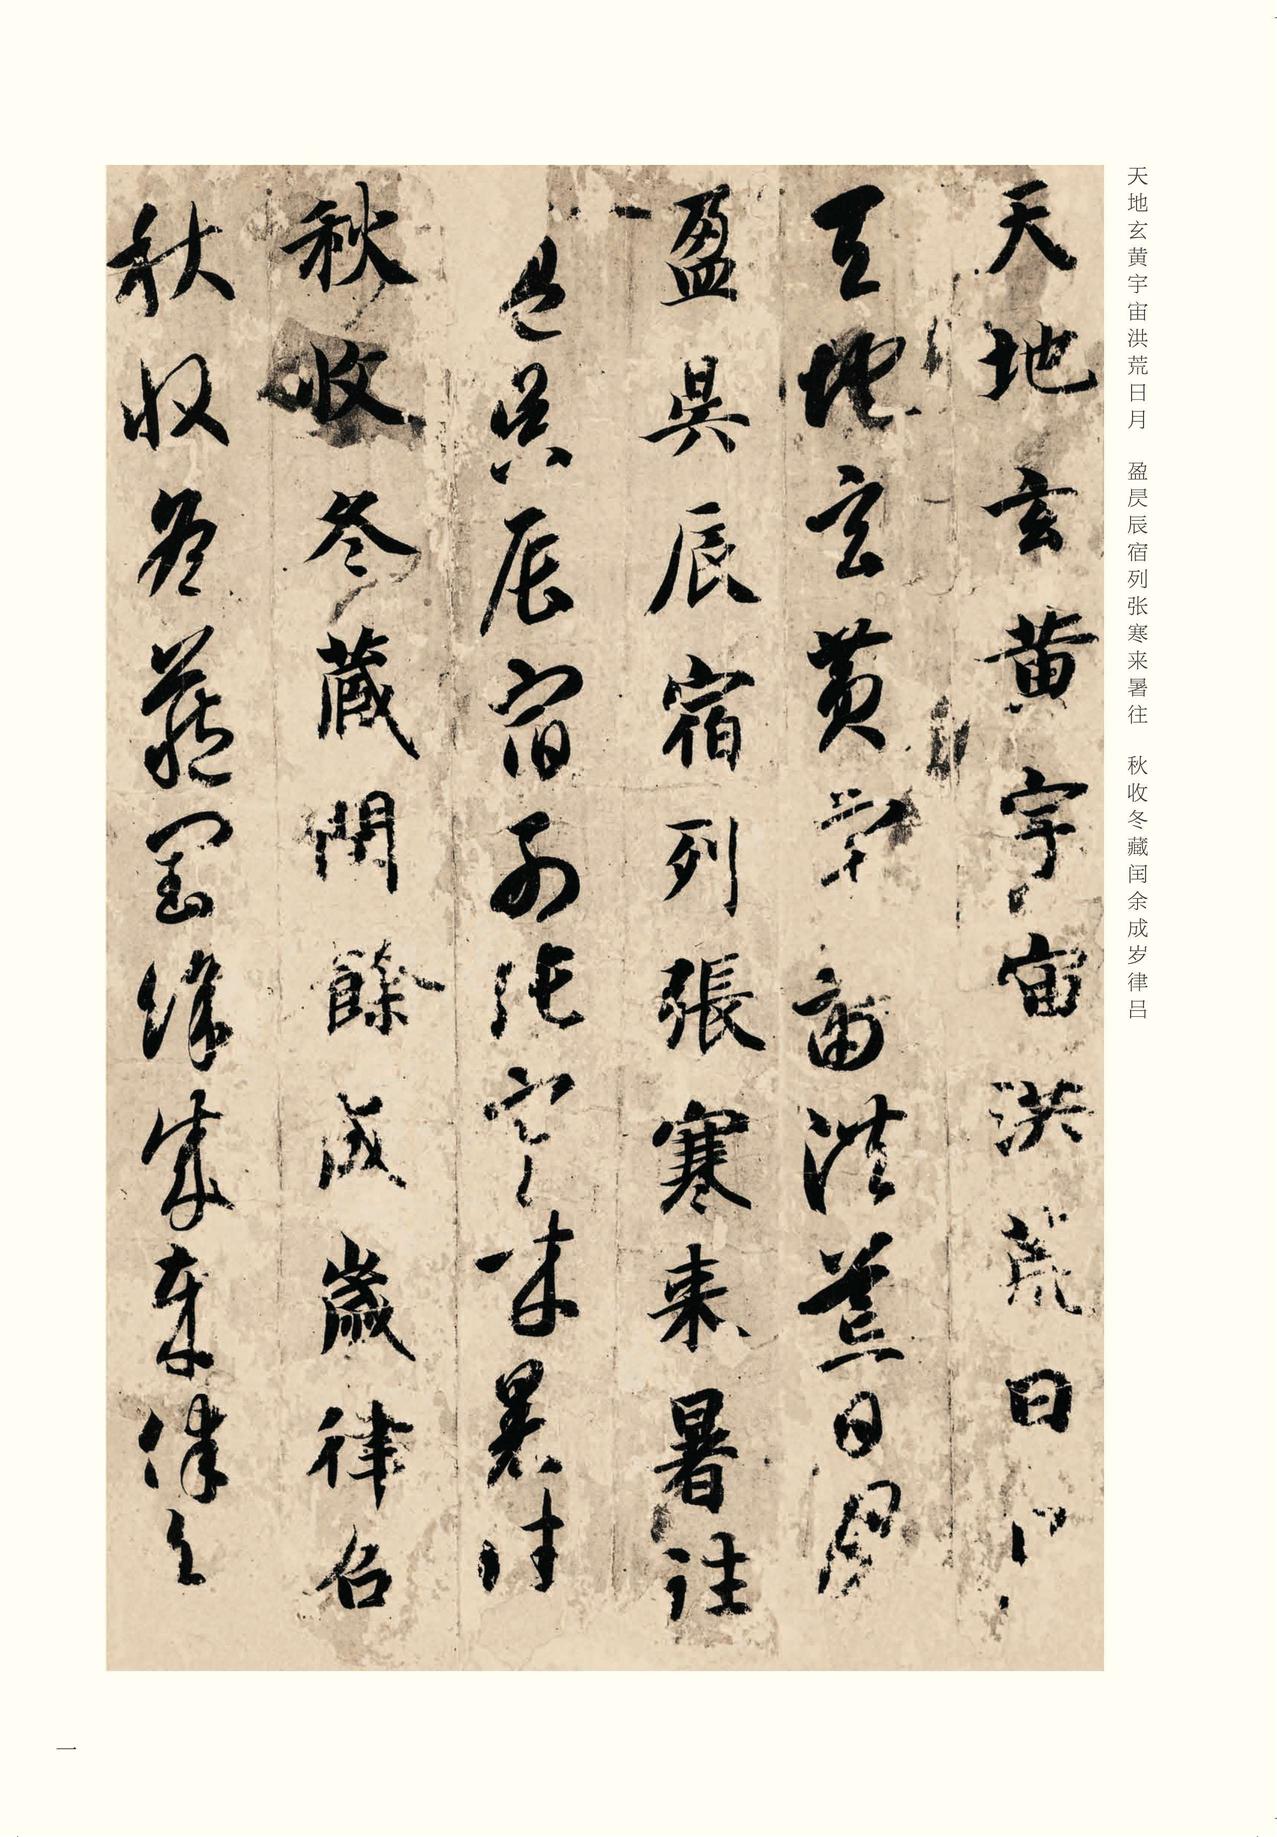 天地玄黄宇宙洪荒日月　盈昃辰宿列张寒来暑往　秋收冬藏闰余成岁律吕
天地玄黄宇宙洪荒日
天地玄黄宇宙洪荒日月
盈昃辰宿列張寒来暑往
盈昃辰宿列張寒来暑往
秋收冬藏閏餘成歲律呂
秋收冬藏閏餘成歲律呂
一